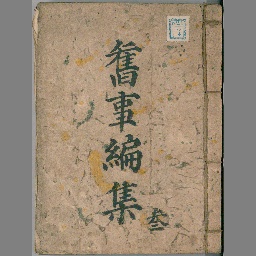 舊事編集
叁